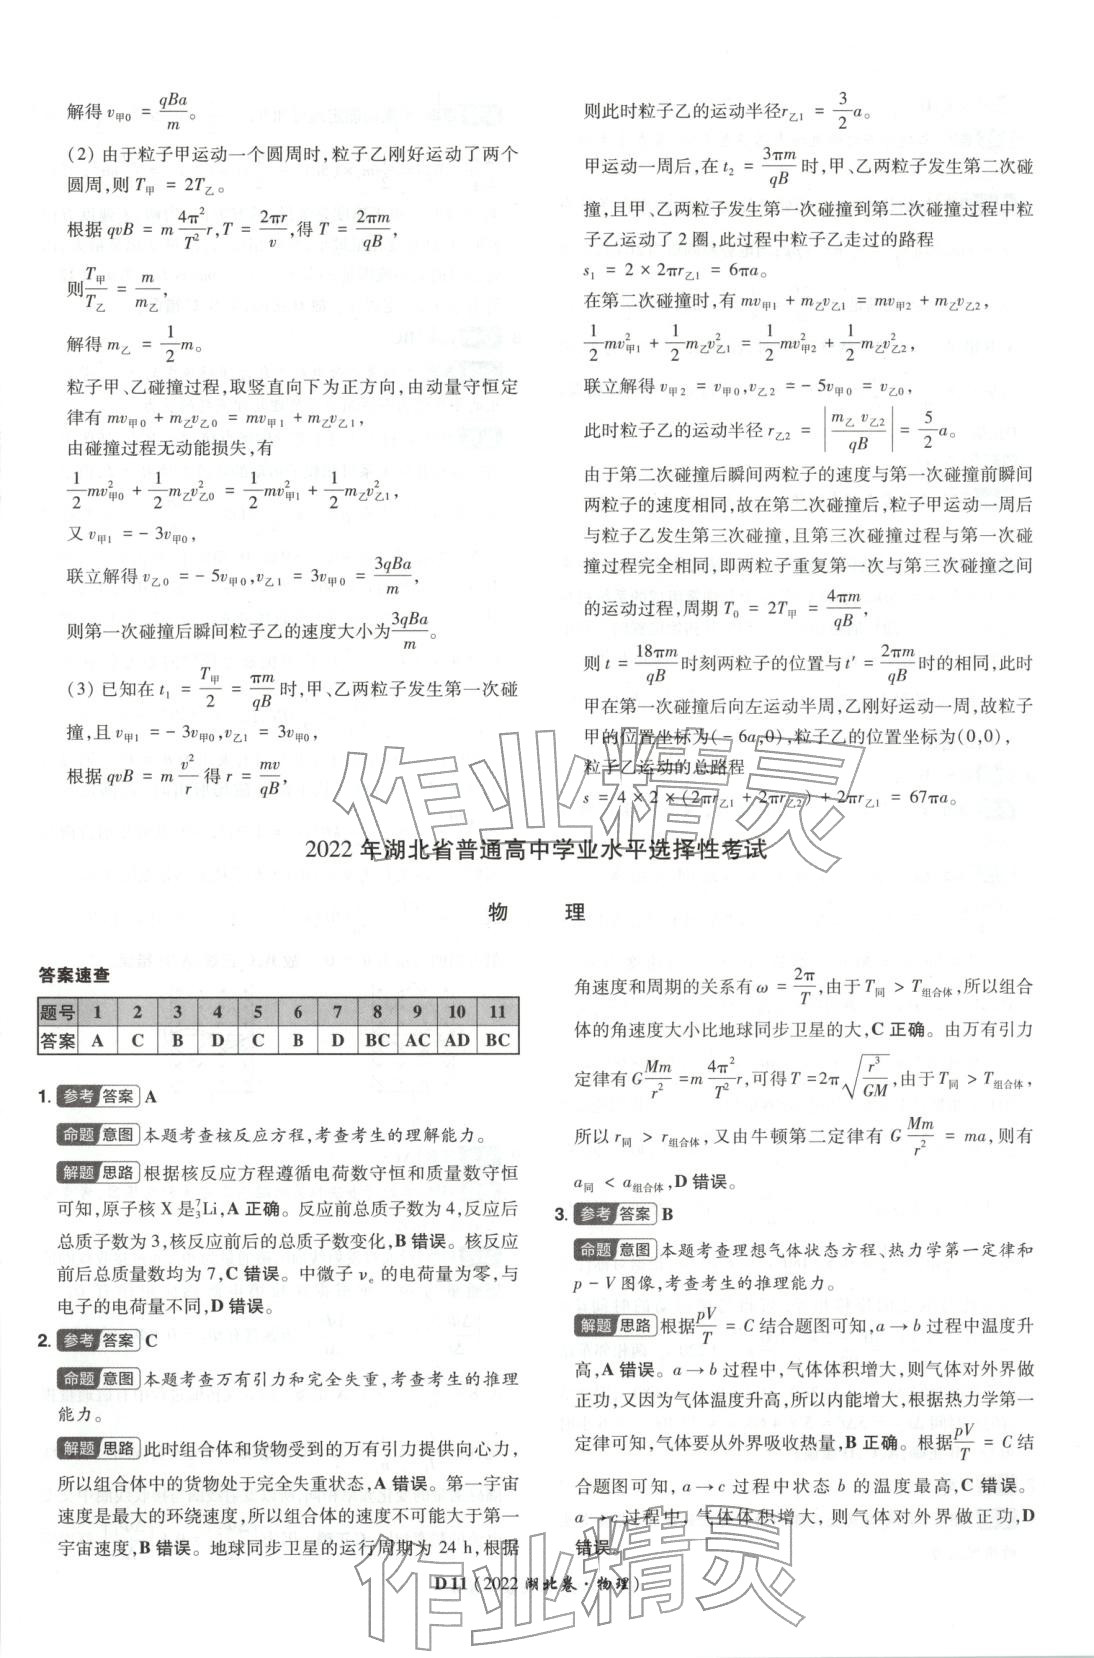 解得 v甲0 = qBa/m。
(2) 由于粒子甲运动一个圆周时,粒子乙刚好运动了两个
圆周,则 T甲 = 2T乙。
根据 qvB = m 4π²/T² r,T = 2πr/v,得 T = 2πm/qB,
则 T甲/T乙 = m/m乙,
解得 m乙 = 1/2 m。
粒子甲、乙碰撞过程,取竖直向下为正方向,由动量守恒定
律有 mv甲0 + m乙v乙0 = mv甲1 + m乙v乙1,
由碰撞过程无动能损失,有
1/2 mv²甲0 + 1/2 m乙v²乙0 = 1/2 mv²甲1 + 1/2 m乙v²乙1,
又 v甲1 = - 3v甲0,
联立解得 v乙0 = - 5v甲0,v乙1 = 3v甲0 = 3qBa/m,
则第一次碰撞后瞬间粒子乙的速度大小为 3qBa/m。
(3) 已知在 t₁ = T甲/2 = πm/qB 时,甲、乙两粒子发生第一次碰
撞,且 v甲1 = - 3v甲0,v乙1 = 3v甲0,
根据 qvB = m v²/r 得 r = mv/qB,
则此时粒子乙的运动半径 r乙1 = 3/2 a。
甲运动一周后,在 t₂ = 3πm/qB 时,甲、乙两粒子发生第二次碰
撞,且甲、乙两粒子发生第一次碰撞到第二次碰撞过程中粒
子乙运动了 2 圈,此过程中粒子乙走过的路程
s₁ = 2 × 2πr乙1 = 6πa。
在第二次碰撞时,有 mv甲1 + m乙v乙1 = mv甲2 + m乙v乙2,
1/2 mv²甲1 + 1/2 m乙v²乙1 = 1/2 mv²甲2 + 1/2 m乙v²乙2,
联立解得 v甲2 = v甲0,v乙2 = - 5v甲0 = v乙0,
此时粒子乙的运动半径 r乙2 = |m乙v乙2/qB| = 5/2 a。
由于第二次碰撞后瞬间两粒子的速度与第一次碰撞前瞬间
两粒子的速度相同,故在第二次碰撞后,粒子甲运动一周后
与粒子乙发生第三次碰撞,且第三次碰撞过程与第一次碰
撞过程完全相同,即两粒子重复第一次与第三次碰撞之间
的运动过程,周期 T₀ = 2T甲 = 4πm/qB,
则 t = 18πm/qB 时刻两粒子的位置与 t′ = 2πm/qB 时的相同,此时
甲在第一次碰撞后向左运动半周,乙刚好运动一周,故粒子
甲的位置坐标为(-6a,0),粒子乙的位置坐标为(0,0),
粒子乙运动的总路程
s = 4 × 2 × (2πr乙1 + 2πr乙2) + 2πr乙1 = 67πa。
作业精灵
2022 年湖北省普通高中学业水平选择性考试
物 理
答案速查
题号 1 2 3 4 5 6 7 8 9 10 11
答案 A C B D C B D BC AC AD BC
1. 参考答案 A
命题意图 本题考查核反应方程,考查考生的理解能力。
解题思路 根据核反应方程遵循电荷数守恒和质量数守恒
可知,原子核 X 是⁷₃Li,A 正确。反应前总质子数为 4,反应后
总质子数为 3,核反应前后的总质子数变化,B 错误。核反应
前后总质量数均为 7,C 错误。中微子 νₑ 的电荷量为零,与
电子的电荷量不同,D 错误。
2. 参考答案 C
命题意图 本题考查万有引力和完全失重,考查考生的推理
能力。
解题思路 此时组合体和货物受到的万有引力提供向心力,
所以组合体中的货物处于完全失重状态,A 错误。第一宇宙
速度是最大的环绕速度,所以组合体的速度不可能大于第一
宇宙速度,B 错误。地球同步卫星的运行周期为 24 h,根据
角速度和周期的关系有 ω = 2π/T,由于 T同 > T组合体,所以组合
体的角速度大小比地球同步卫星的大,C 正确。由万有引力
定律有 G Mm/r² = m 4π²/T² r,可得 T = 2π√(r³/GM),由于 T同 > T组合体,
所以 r同 > r组合体,又由牛顿第二定律有 G Mm/r² = ma,则有
a同 < a组合体,D 错误。
3. 参考答案 B
命题意图 本题考查理想气体状态方程、热力学第一定律和
p - V 图像,考查考生的推理能力。
解题思路 根据 pV/T = C 结合题图可知,a→b 过程中温度升
高,A 错误。a→b 过程中,气体体积增大,则气体对外界做
正功,又因为气体温度升高,所以内能增大,根据热力学第一
定律可知,气体要从外界吸收热量,B 正确。根据 pV/T = C 结
合题图可知,a→c 过程中状态 b 的温度最高,C 错误。
a→c 过程中,气体体积增大,则气体对外界做正功,D
错误。
作业精灵
D 11 (2022 湖北卷·物理)